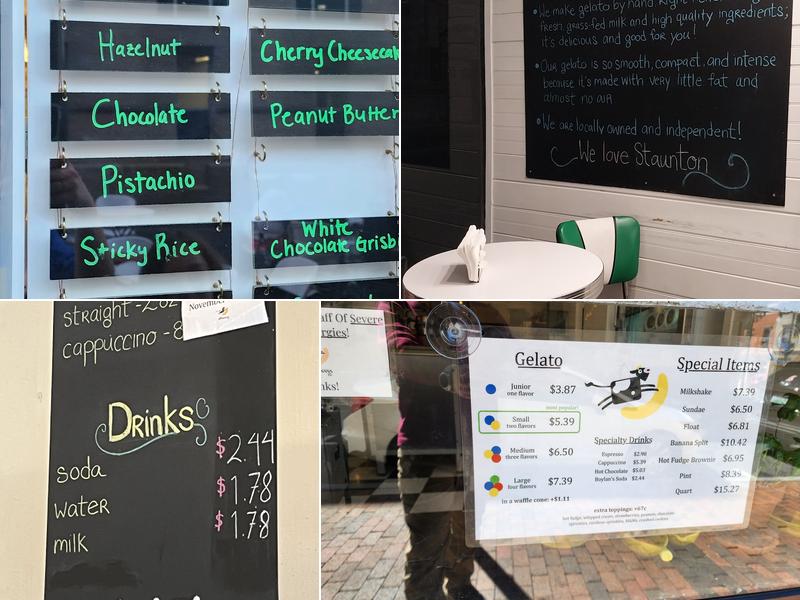 Hazelnut
Chocolate
Pistachio
Sticky Rice
Cherry Cheesecak
Peanut Butter
White
Chocolate Grisb
• We make gelato by hand.
fresh, grass-fed milk and high quality ingredients;
it's delicious and good for you!
• Our gelato is so smooth, compact, and intense
because it's made with very little fat and
almost no air
• We are locally owned and independent!
We love Staunton
straight - 2oz
cappuccino - 8
November
Drinks
soda $2.44
water $1.78
milk $1.78
aff Of Severe
rgies!
nks!
Gelato
Junior
one flavor
$3.87
most popular!
Small
two flavors
$5.39
Medium
three flavors
$6.50
Large
four flavors
$7.39
in a waffle cone: +$1.11
Specialty Drinks
Espresso $2.90
Cappuccino $5.39
Hot Chocolate $5.03
Boylan's Soda $2.44
Special Items
Milkshake $7.39
Sundae $6.50
Float $6.81
Banana Split $10.42
Hot Fudge Brownie $6.95
Pint $8.39
Quart $15.27
extra toppings: +67c
hot fudge, whipped cream, strawberries, peanuts, chocolate
sprinkles, rainbow sprinkles, M&Ms, crushed cookies